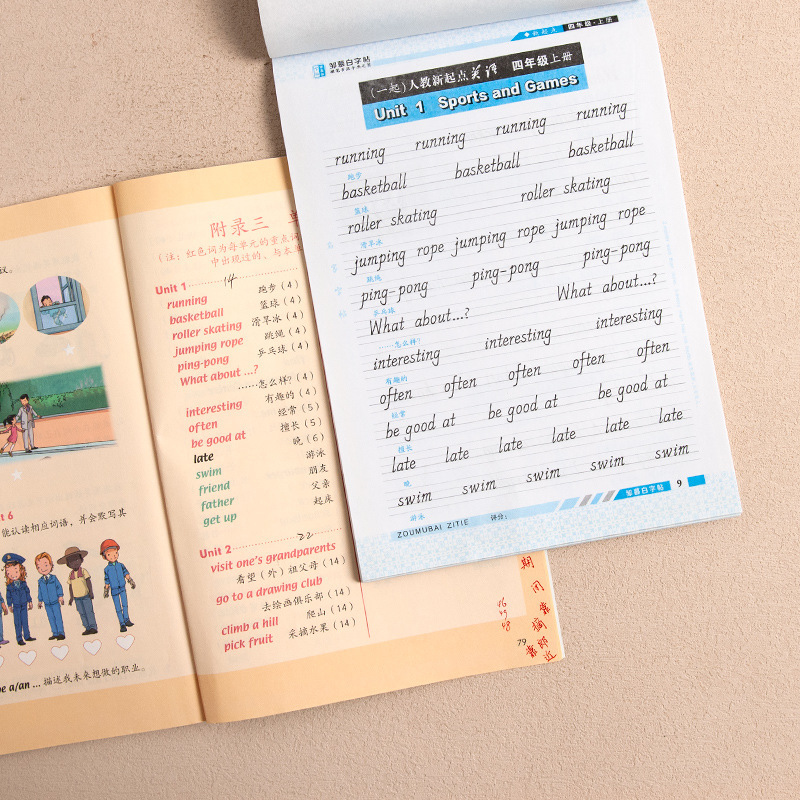 议。
t 6
能认读相应词语，并会默写其
be a/an ... 描述我未来想做的职业。
附录三 单
(注：红色词为每单元的重点词
中出现过的、与本
Unit 1 14
running 跑步 (4)
basketball 篮球 (4)
roller skating 滑旱冰 (4)
jumping rope 跳绳 (4)
ping-pong 乒乓球 (4)
What about ...?
……怎么样? (4)
interesting 有趣的 (4)
often 经常 (5)
be good at 擅长 (5)
late 晚 (6)
swim 游泳
friend 朋友
father 父亲
get up 起床
Unit 2 22
visit one's grandparents
看望（外）祖父母 (14)
go to a drawing club
去绘画俱乐部 (14)
climb a hill 爬山 (14)
pick fruit 采摘水果 (14)
79
邹慕白字帖
新起点 四年级·上册
(一起) 人教新起点英语 四年级上册
Unit 1 Sports and Games
running running running running
跑步
basketball basketball basketball
篮球
roller skating roller skating
滑旱冰
jumping rope jumping rope jumping rope
跳绳
ping-pong ping-pong ping-pong
乒乓球
What about...? What about...?
……怎么样?
interesting interesting interesting
有趣的
often often often often often
经常
be good at be good at be good at
擅长
late late late late late
晚
swim swim swim swim swim
游泳
邹慕白字帖 9
ZOUMUBAI ZITIE 评分: